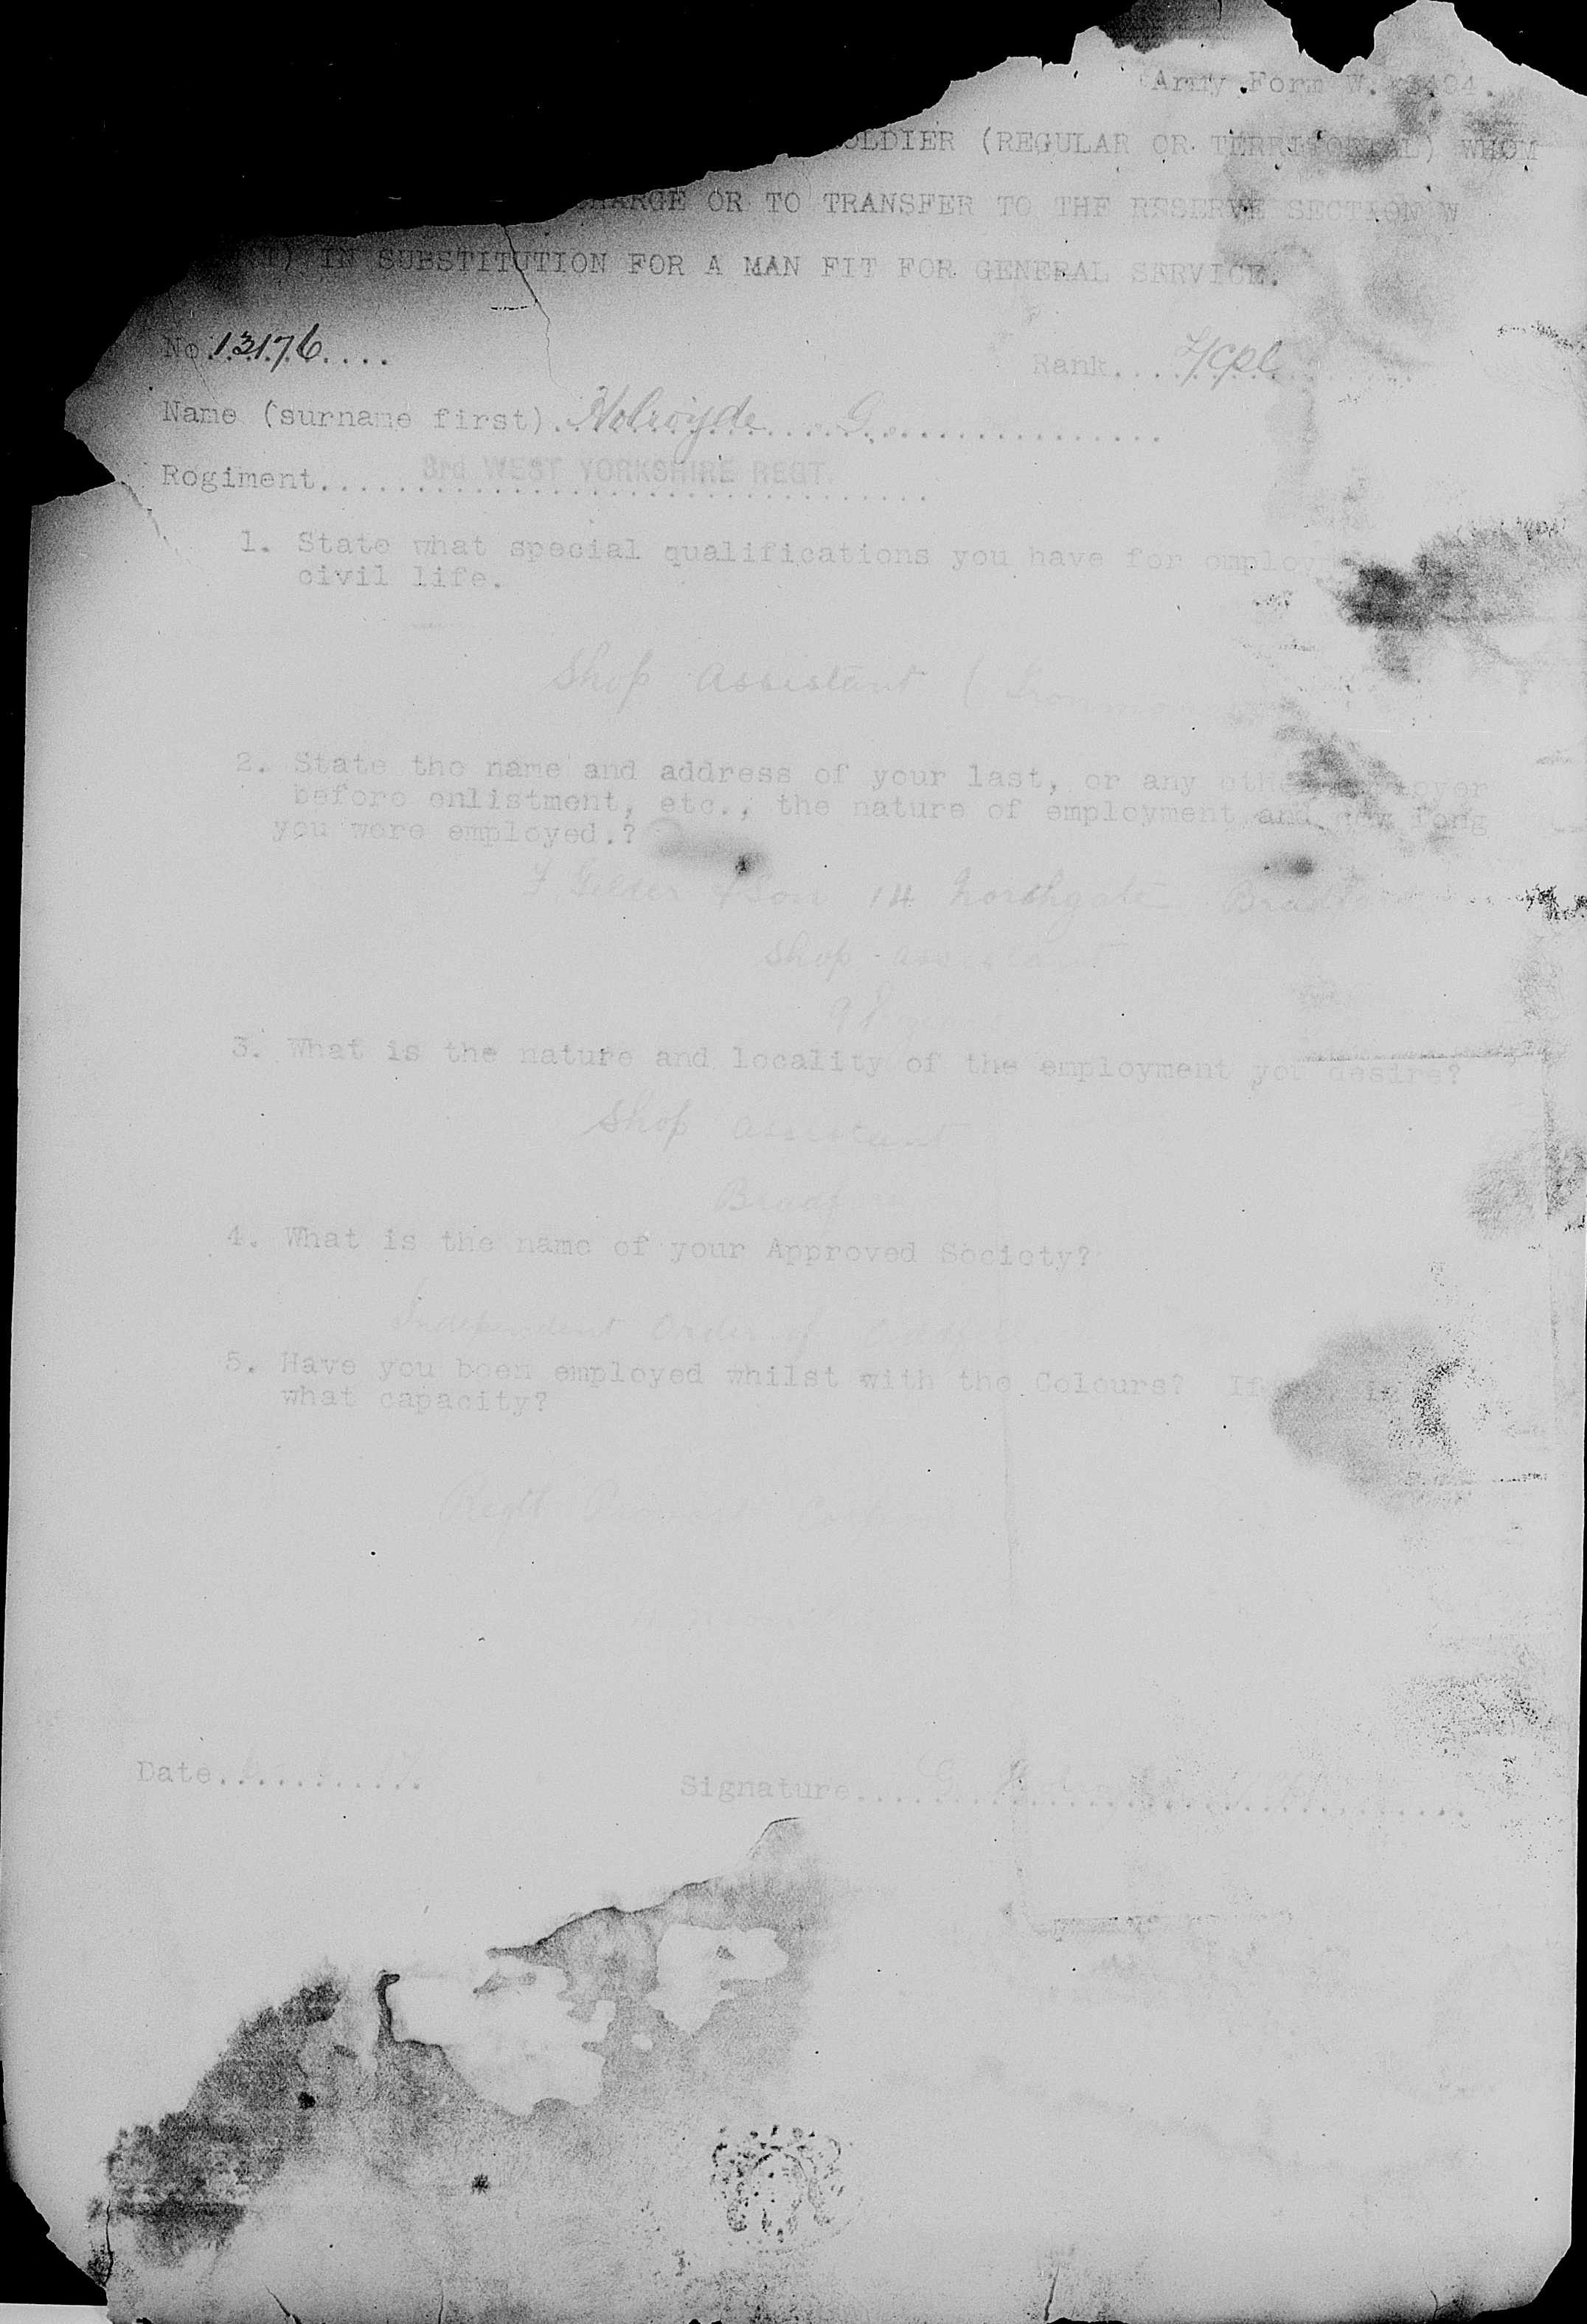 Army Form W. 3494.
OLDIER (REGULAR OR TERRITORIAL) WHOM
CHARGE OR TO TRANSFER TO THE RESERVE SECTION W
IN SUBSTITUTION FOR A MAN FIT FOR GENERAL SERVICE.
No.13176....
Rank....L/Cpl
Name (surname first).Holroyde G.
Rogiment.... 3rd WEST YORKSHIRE REGT.
1. State what special qualifications you have for employ
civil life.
Shop assistant (
2. State the name and address of your last, or any other employer
before enlistment, etc., the nature of employment and how long
you were employed.?
Gelder & Son 14 Northgate Bradf
Shop assistant
3. What is the nature and locality of the employment you desire?
Shop assistant
Bradf
4. What is the name of your Approved Society?
Independent Order of Oddf
5. Have you been employed whilst with the Colours? If
what capacity?
Regtl
Date............
Signature....G. Holroyde